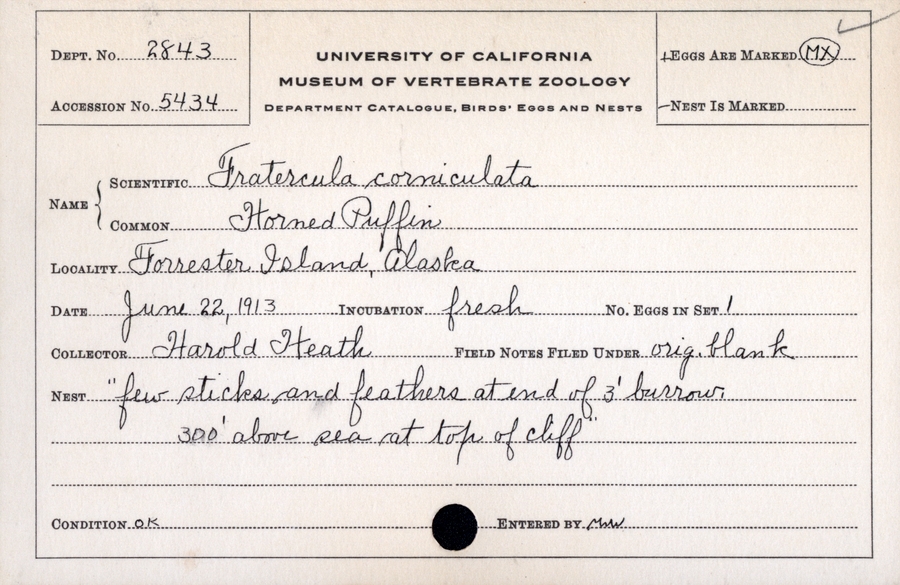 Dept. No. 2843
Accession No. 5434
University of California
Museum of Vertebrate Zoology
Department Catalogue, Birds' Eggs and Nests
+Eggs Are Marked MX
–Nest Is Marked
Name
Scientific Fratercula corniculata
Common Horned Puffin
Locality Forrester Island, Alaska
Date June 22, 1913 Incubation fresh No. Eggs in Set 1
Collector Harold Heath Field Notes Filed Under orig. blank
Nest "few sticks and feathers at end of 3' burrow.
300' above sea at top of cliff"
Condition OK Entered by